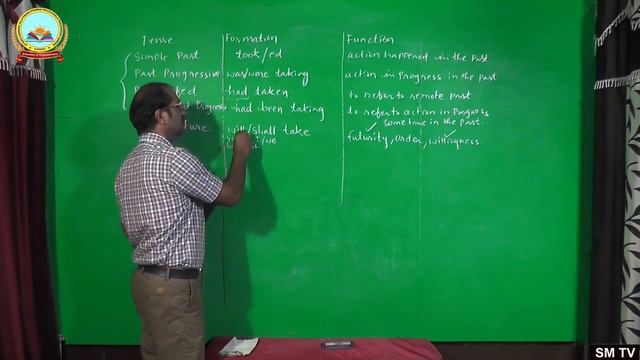 Tense Formation Function
Simple Past took/ed action happened in the past
Past Progressive was/were taking action in Progress in the past
had taken to refer to remote past
had been taking to refer to action in Progress
sometime in the past
will/shall take futurity, order, willingness
I/we
SM TV